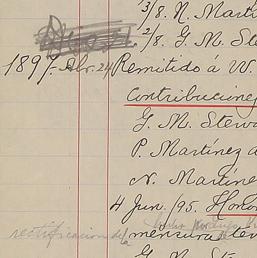 3/8. N. Marti
2/8. G. M. Ste
1897. Abr. 24 Remitido á W.
Contribucione
G. M. Stewa
P. Martínez a
N. Martíne
4 Jun. /95. Hono
rectificacion de la mensura
G. M. Ste